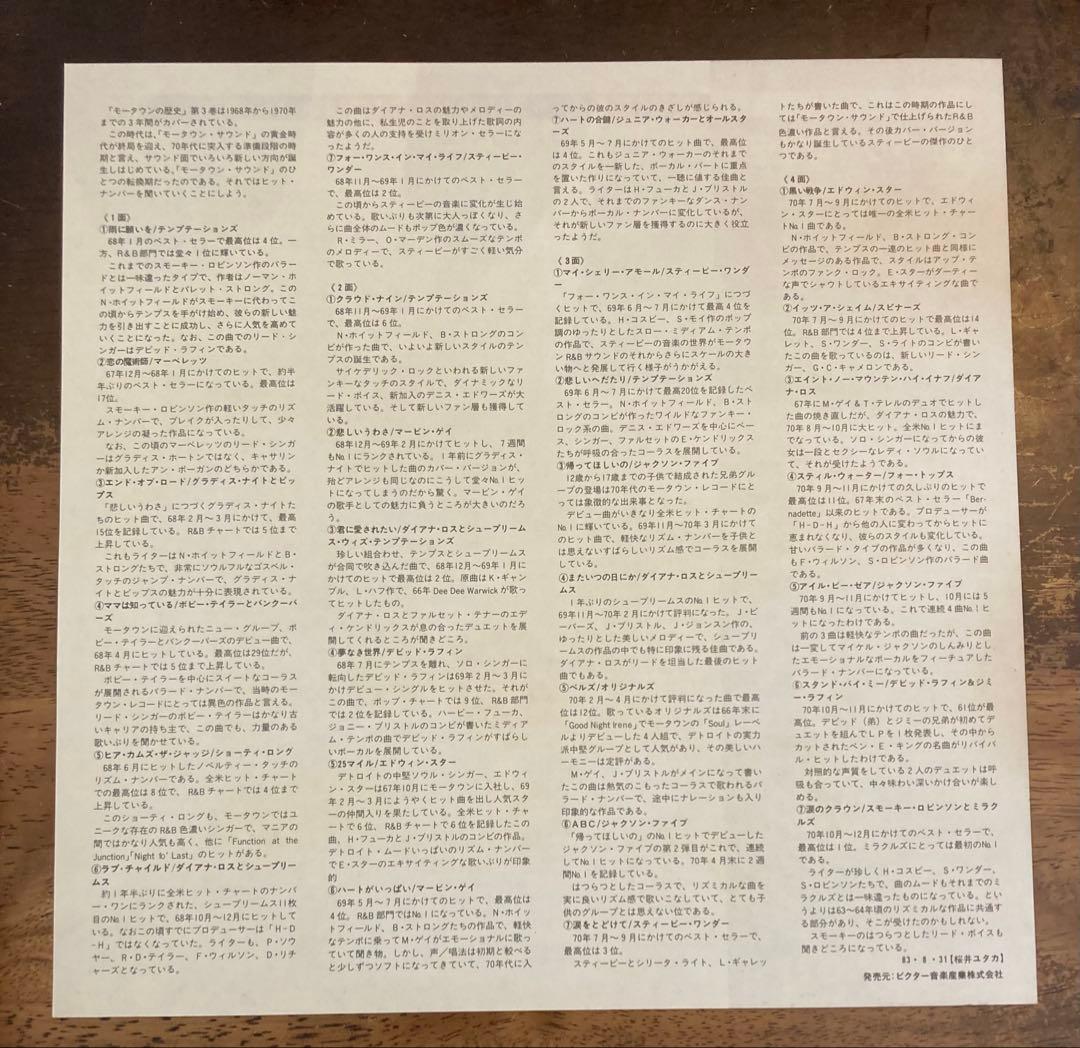 『モータウンの歴史』第3巻は1968年から1970年
までの3年間がカバーされている。
この時代は、「モータウン・サウンド」の黄金時
代が終局を迎え、70年代に突入する準備段階の時
期と言え、サウンド面でいろいろ新しい方向が誕
生しはじめている。「モータウン・サウンド」のひ
とつの転換期だったのである。それではヒット・
ナンバーを聞いていくことにしよう。
《1面》
①雨に願いを/テンプテーションズ
68年1月のベスト・セラーで最高位は4位。一
方、R&B部門では堂々1位に輝いている。
これまでのスモーキー・ロビンソン作のバラー
ドとは一味違ったタイプで、作者はノーマン・ホ
イットフィールドとバレット・ストロング。この
N・ホイットフィールドがスモーキーに代わってこ
の頃からテンプスを手がけ始め、彼らの新しい魅
力を引き出すことに成功し、さらに人気を高めて
いくことになった。なお、この曲でのリード・シ
ンガーはデビッド・ラフィンである。
②恋の魔術師/マーベレッツ
67年12月〜68年1月にかけてのヒットで、約半
年ぶりのベスト・セラーになっている。最高位は
17位。
スモーキー・ロビンソン作の軽いタッチのリズ
ム・ナンバーで、ブレイクが入ったりして、少々
アレンジの凝った作品になっている。
なお、この頃のマーベレッツのリード・シンガ
ーはグラディス・ホートンではなく、キャサリン
か新加入したアン・ボーガンのどちらかである。
③エンド・オブ・ロード/グラディス・ナイトとピッ
プス
「悲しいうわさ」につづくグラディス・ナイトた
ちのヒット曲で、68年2月〜3月にかけて、最高
15位を記録している。R&Bチャートでは5位まで
上昇している。
これもライターはN・ホイットフィールドとB・
ストロングたちで、非常にソウルフルなゴスペル・
タッチのジャンプ・ナンバーで、グラディス・ナ
イトとピップスの魅力が十分に表現されている。
④ママは知っている/ボビー・テイラーとバンクーバ
ーズ
モータウンに迎えられたニュー・グループ、ボ
ビー・テイラーとバンクーバーズのデビュー曲で、
68年4月にヒットしている。最高位は29位だが、
R&Bチャートでは5位まで上昇している。
ボビー・テイラーを中心にスイートなコーラス
が展開されるバラード・ナンバーで、当時のモー
タウン・レコードにとっては異色の作品と言える。
リード・シンガーのボビー・テイラーはかなり古
いキャリアの持ち主で、この曲でも、力量のある
歌いぶりを聞かせている。
⑤ヒア・カムズ・ザ・ジャッジ/ショーティ・ロング
68年6月にヒットしたノベルティー・タッチの
リズム・ナンバーである。全米ヒット・チャート
での最高位は8位で、R&Bチャートでは4位まで
上昇している。
このショーティ・ロングも、モータウンではユ
ニークな存在のR&B色濃いシンガーで、マニアの
間ではかなり人気も高く、他に「Function at the
Junction」「Night fo' Last」のヒットがある。
⑥ラブ・チャイルド/ダイアナ・ロスとシュープリー
ムス
約1年半ぶりに全米ヒット・チャートのナンバ
ー・ワンにランクされた、シュープリームス11枚
目のNo.1ヒットで、68年10月〜12月にヒットしてい
る。なおこの頃すでにプロデューサーは「H-D
-H」ではなくなっていた。ライターも、P・ソウ
ヤー、R・D・テイラー、F・ウィルソン、D・リチ
ャーズとなっている。
この曲はダイアナ・ロスの魅力やメロディーの
魅力の他に、私生児のことを取り上げた歌詞の内
容が多くの人の支持を受けミリオン・セラーにな
ったようだ。
⑦フォー・ワンス・イン・マイ・ライフ/スティービー・
ワンダー
68年11月〜69年1月にかけてのベスト・セラー
で、最高位は2位。
この頃からスティービーの音楽に変化が生じ始
めている。歌いぶりも次第に大人っぽくなり、さ
らに曲全体のムードもポップ色が濃くなっている。
R・ミラー、O・マーデン作のスムーズなテンポ
のメロディーで、スティービーがすごく軽い気分
で歌っている。
《2面》
①クラウド・ナイン/テンプテーションズ
68年11月〜69年1月にかけてのベスト・セラー
で、最高位は6位。
N・ホイットフィールド、B・ストロングのコン
ビが作った曲で、いよいよ新しいスタイルのテン
プスの誕生である。
サイケデリック・ロックといわれる新しいファ
ンキーなタッチのスタイルで、ダイナミックなリ
ード・ボイス、新加入のデニス・エドワーズが大
活躍している。そして新しいファン層も獲得して
いる。
②悲しいうわさ/マービン・ゲイ
68年12月〜69年2月にかけてヒットし、7週間
もNo.1にランクされている。1年前にグラディス・
ナイトでヒットした曲のカバー・バージョンが、
殆どアレンジも同じなのにこうして堂々No.1ヒッ
トになってしまうのだから驚く。マービン・ゲイ
の歌手としての魅力に負うところが大きいのだろ
う。
③君に愛されたい/ダイアナ・ロスとシュープリーム
ス・ウィズ・テンプテーションズ
珍しい組合わせ、テンプスとシュープリームス
が合同で吹き込んだ曲で、68年12月〜69年1月に
かけてのヒットで最高位は2位。原曲はK・ギャン
ブル、L・ハフ作で、66年 Dee Dee Warwick が歌
ってヒットしたもの。
ダイアナ・ロスとファルセット・テナーのエデ
ィ・ケンドリックスが息の合ったデュエットを展
開してくれるところが聞きどころ。
④夢なき世界/デビッド・ラフィン
68年7月にテンプスを離れ、ソロ・シンガーに
転向したデビッド・ラフィンは69年2月〜3月に
かけデビュー・シングルをヒットさせた。それが
この曲で、ポップ・チャートでは9位、R&B部門
では2位を記録している。ハービー・フューカ、
ジョニー・ブリストルのコンビが書いたミディア
ム・テンポの曲でデビッド・ラフィンがすばらし
いボーカルを展開している。
⑤25マイル/エドウィン・スター
デトロイトの中堅ソウル・シンガー、エドウィ
ン・スターは67年10月にモータウンに入社し、69
年2月〜3月にようやくヒット曲を出し人気スタ
ーの仲間入りを果たしている。全米ヒット・チャ
ートで6位、R&Bチャートで6位を記録したこの
曲、H・フューカとJ・ブリストルのコンビの作品。
デトロイト・ムードいっぱいのリズム・ナンバー
でE・スターのエキサイティングな歌いぶりが印象
的
⑥ハートがいっぱい/マービン・ゲイ
69年5月〜7月にかけてのヒットで、最高位は
4位。R&B部門ではNo.1になっている。N・ホイッ
トフィールド、B・ストロングたちの作品で、軽快
なテンポに乗ってM・ゲイがエモーショナルに歌っ
ていて聞き物。しかし、声/唱法は初期と較べる
と少しずつソフトになってきていて、70年代に入
ってからの彼のスタイルのきざしが感じられる。
⑦ハートの合鍵/ジュニア・ウォーカーとオールスタ
ーズ
69年5月〜7月にかけてのヒット曲で、最高位
は4位。これもジュニア・ウォーカーのそれまで
のスタイルを一新した、ボーカル・パートに重点
を置いた作りになっていて、一聴に値する佳曲と
言える。ライターはH・フューカとJ・ブリストル
の2人で、それまでのファンキーなダンス・ナン
バーからボーカル・ナンバーに変化しているが、
それが新しいファン層を獲得するのに大きく役立
ったようだ。
《3面》
①マイ・シェリー・アモール/スティービー・ワンダ
ー
「フォー・ワンス・イン・マイ・ライフ」につづ
くヒットで、69年6月〜7月にかけて最高4位を
記録している。H・コスビー、S・モイ作のポップ
調のゆったりとしたスロー・ミディアム・テンポ
の作品で、スティービーの音楽の世界がモータウ
ンR&Bサウンドのそれからさらにスケールの大き
い物へと発展して行く様子がうかがえる。
②悲しいへだたり/テンプテーションズ
69年6月〜7月にかけて最高20位を記録したベ
スト・セラー。N・ホイットフィールド、B・スト
ロングのコンビが作ったワイルドなファンキー・
ロック系の曲。デニス・エドワーズを中心にベー
ス、シンガー、ファルセットのE・ケンドリックス
たちが呼吸の合ったコーラスを展開している。
③帰ってほしいの/ジャクソン・ファイブ
12歳から17歳までの子供で結成された兄弟グル
ープの登場は70年代のモータウン・レコードにと
っては象徴的な出来事となった。
デビュー曲がいきなり全米ヒット・チャートの
No.1に輝いている。69年11月〜70年3月にかけて
のヒット曲で、軽快なリズム・ナンバーを子供と
は思えないすばらしいリズム感でコーラスを展開
している。
④またいつの日にか/ダイアナ・ロスとシュープリー
ムス
1年ぶりのシュープリームスのNo.1ヒットで、
69年11月〜70年2月にかけて評判になった。J・ビ
ーバーズ、J・ブリストル、J・ジョンスン作の、
ゆったりとした美しいメロディーで、シュープリ
ームスの作品の中でも特に印象に残る佳曲である。
ダイアナ・ロスがリードを担当した最後のヒット
曲でもある。
⑤ベルズ/オリジナルズ
70年2月〜4月にかけて評判になった曲で最高
位は12位。歌っているオリジナルズは66年末に
「Good Night Irene」でモータウンの「Soul」レーベ
ルよりデビューした4人組で、デトロイトの実力
派中堅グループとして人気があり、その美しいハ
ーモニーは定評がある。
M・ゲイ、J・ブリストルがメインになって書い
たこの曲は熱気のこもったコーラスで歌われるバ
ラード・ナンバーで、途中にナレーションも入り
印象的な作品である。
⑥ABC/ジャクソン・ファイブ
「帰ってほしいの」のNo.1ヒットでデビューした
ジャクソン・ファイブの第2弾目がこれで、連続
してNo.1ヒットになっている。70年4月末に2週
間No.1を記録している。
はつらつとしたコーラスで、リズミカルな曲を
実に良いリズム感で歌いこなしていて、とても子
供のグループとは思えない位である。
⑦涙をとどけて/スティービー・ワンダー
70年7月〜9月にかけてのベスト・セラーで、
最高位は3位。
スティービーとシリータ・ライト、L・ギャレッ
トたちが書いた曲で、これはこの時期の作品にし
ては「モータウン・サウンド」で仕上げられたR&B
色濃い作品と言える。その後カバー・バージョン
もかなり誕生しているスティービーの傑作のひと
つである。
《4面》
①黒い戦争/エドウィン・スター
70年7月〜9月にかけてのヒットで、エドウィ
ン・スターにとっては唯一の全米ヒット・チャー
トNo.1曲である。
N・ホイットフィールド、B・ストロング・コン
ビの作品で、テンプスの一連のヒット曲と同様に
メッセージのある作品で、スタイルはアップ・テ
ンポのファンク・ロック。E・スターがダーティー
な声でシャウトしているエキサイティングな曲で
ある。
②イッツ・ア・シェイム/スピナーズ
70年7月〜9月にかけてのヒットで最高位は14
位。R&B部門では4位まで上昇している。L・ギャ
レット、S・ワンダー、S・ライトのコンビが書い
たこの曲を歌っているのは、新しいリード・シン
ガー、G・C・キャメロンである。
③エイント・ノー・マウンテン・ハイ・イナフ/ダイア
ナ・ロス
67年にM・ゲイ&T・テレルのデュオでヒットし
た曲の焼き直しだが、ダイアナ・ロスの魅力で、
70年8月〜10月に大ヒット。全米No.1ヒットにま
でなっている。ソロ・シンガーになってからの彼
女は一段とセクシーなレディ・ソウルになってい
て、それが受けたようである。
④スティル・ウォーター/フォー・トップス
70年9月〜11月にかけての久しぶりのヒットで
最高位は11位。67年末のベスト・セラー「Ber-
nadette」以来のヒットである。プロデューサーが
「H-D-H」から他の人に変わってからヒットに
恵まれなくなり、彼らのスタイルも変化している。
甘いバラード・タイプの作品が多くなり、この曲
もF・ウィルソン、S・ロビンソン作のバラード曲
である。
⑤アイル・ビー・ゼア/ジャクソン・ファイブ
70年9月〜11月にかけてヒットし、10月には5
週間もNo.1になっている。これで連続4曲No.1ヒッ
トになったわけである。
前の3曲は軽快なテンポの曲だったが、この曲
は一変してマイケル・ジャクソンのしんみりとし
たエモーショナルなボーカルをフィーチュアした
バラード・ナンバーになっている。
⑥スタンド・バイ・ミー/デビッド・ラフィン&ジミ
ー・ラフィン
70年10月〜11月にかけてのヒットで、61位が最
高位。デビッド(弟)とジミーの兄弟が初めてデ
ュエットを組んでLPを1枚発表し、その中から
カットされたベン・E・キングの名曲がリバイバ
ル・ヒットしたわけである。
対照的な声質をしている2人のデュエットは呼
吸も合っていて、中々味わい深いかけ合いが楽し
める。
⑦涙のクラウン/スモーキー・ロビンソンとミラクル
ズ
70年10月〜12月にかけてのベスト・セラーで、
最高位は1位。ミラクルズにとっては最初のNo.1
である。
ライターが珍しくH・コスビー、S・ワンダー、
S・ロビンソンたちで、曲のムードもそれまでのミ
ラクルズとは一味違ったものになっている。とい
うよりは63〜64年頃のリズミカルな作品に共通す
る部分があり、そこが受けたのかもしれない。
スモーキーのはつらつとしたリード・ボイスも
聞きどころになっている。
83・8・31【桜井ユタカ】
発売元:ビクター音楽産業株式会社